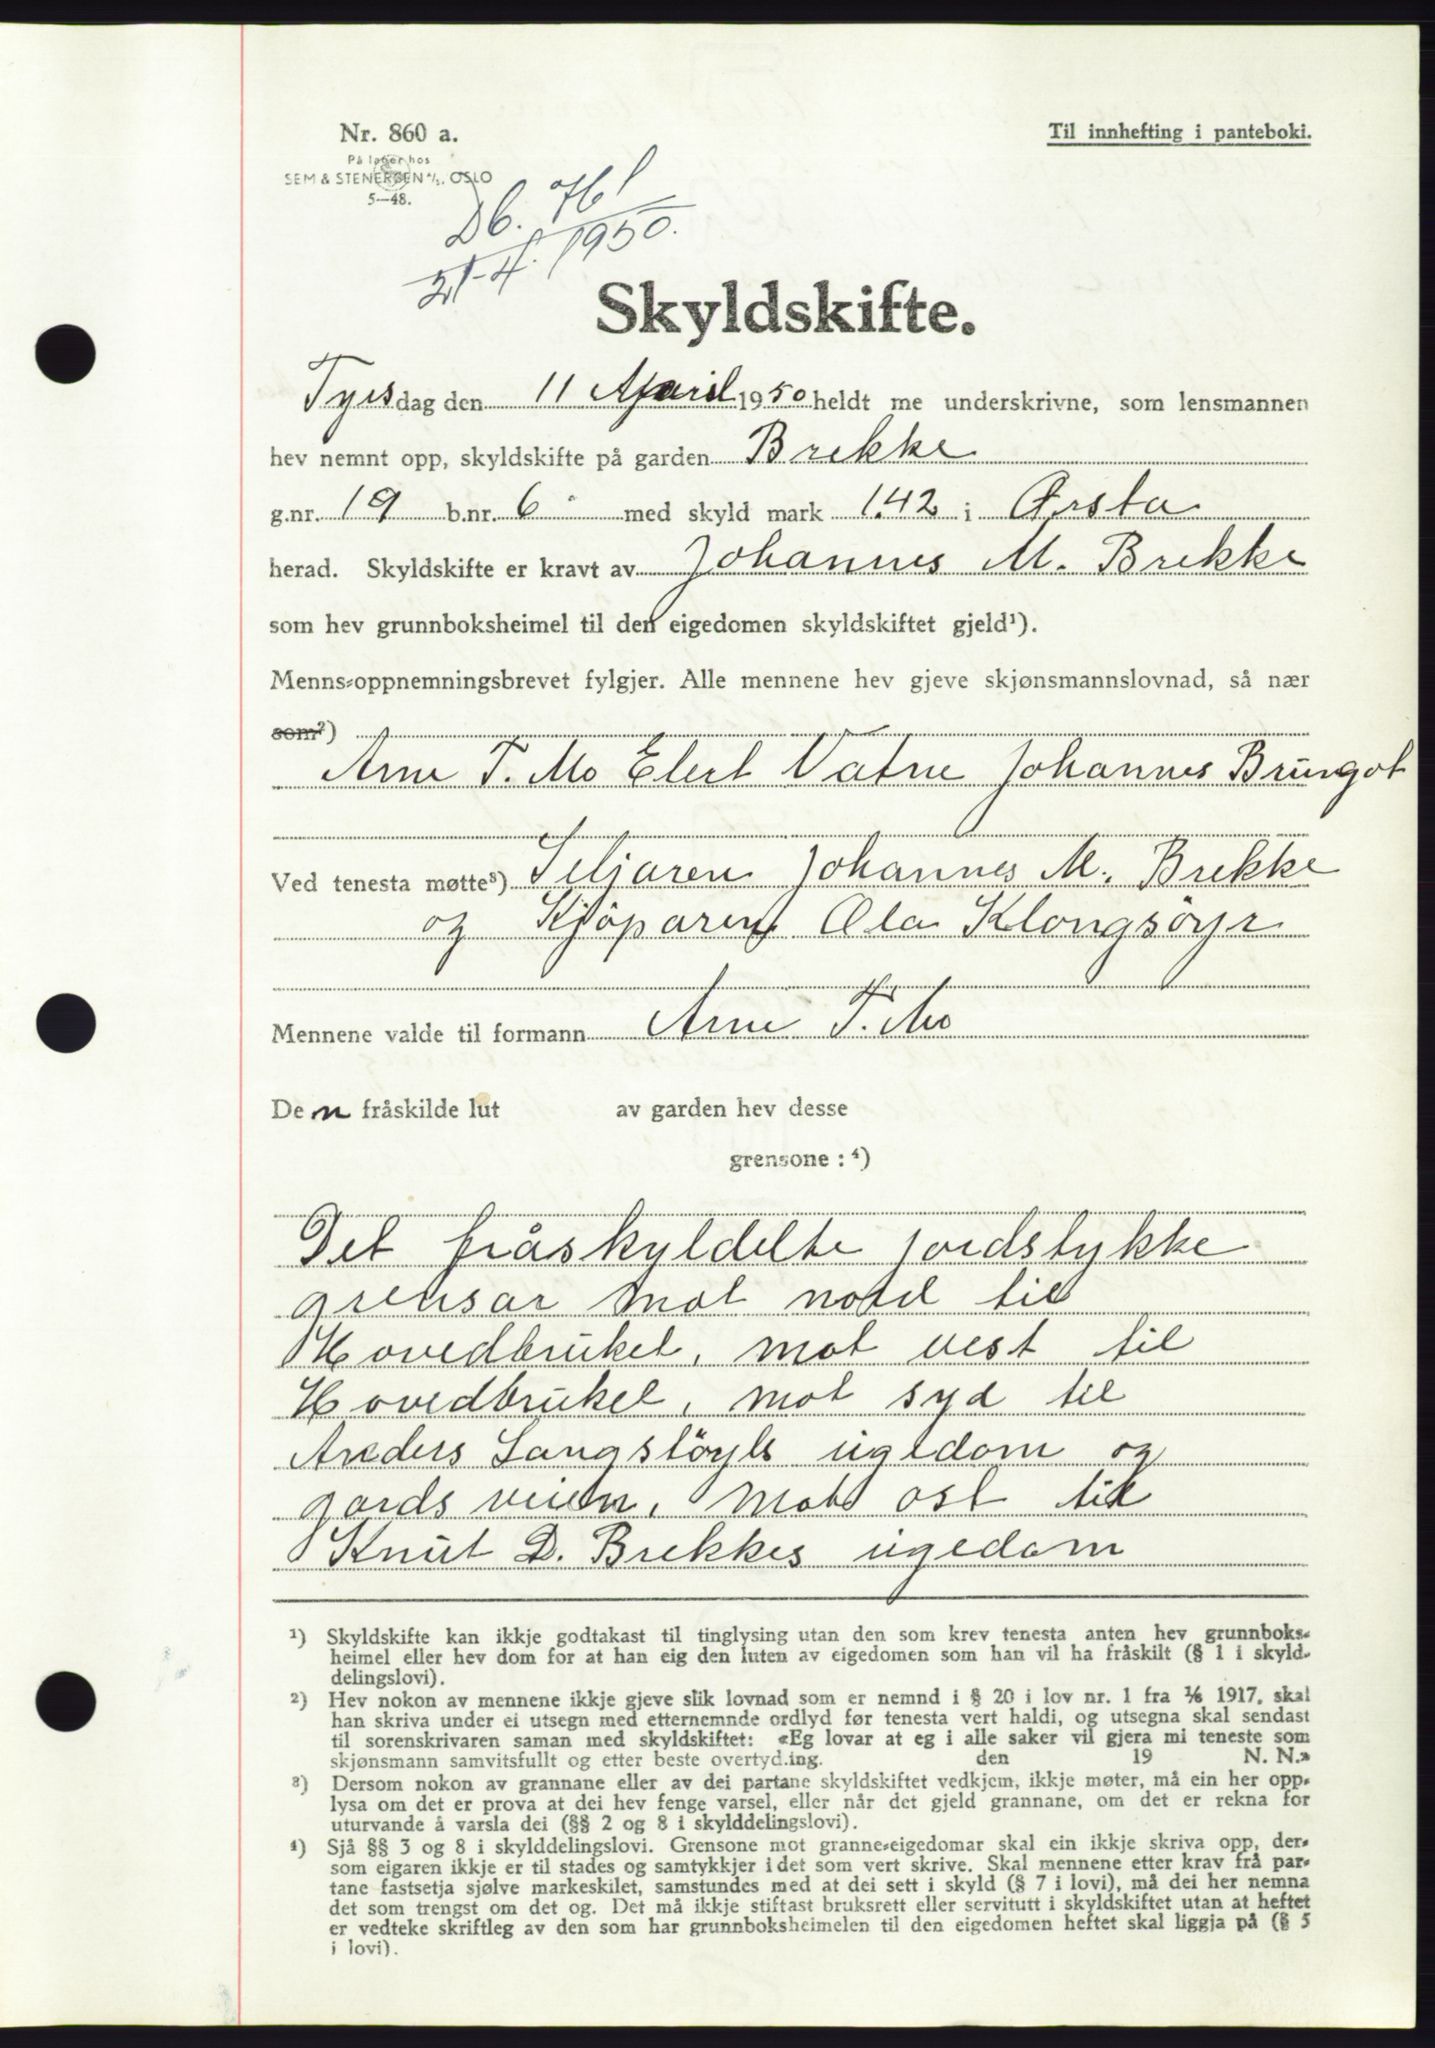 Nr. 860 a.
Til innhefting i panteboki.
På lager hos
SEM & STENERSEN A/S, OSLO
5—48.
Db. 761
21-4. 1950.
Skyldskifte.
Tysdag den 11 April 1950 heldt me underskrivne, som lensmannen
hev nemnt opp, skyldskifte på garden Brekke
g.nr. 19 b.nr. 6 med skyld mark 1.42 i Ørsta
herad. Skyldskifte er kravt av Johannes M. Brekke
som hev grunnboksheimel til den eigedomen skyldskiftet gjeld¹).
Menns-oppnemningsbrevet fylgjer. Alle mennene hev gjeve skjønsmannslovnad, så nær
som²)
Arne T. Mo Elert Vatne Johannes Brungot
Ved tenesta møtte³) Seljaren Johannes M. Brekke
og Kjöparen Ola Klongsöyr
Mennene valde til formann Arne T. Mo
Den fråskilde lut av garden hev desse
grensone : ⁴)
Det fråskyldelte jordstykke
grensar mot nord til
Hovedbruket, mot vest til
Hovedbruket, mot syd til
Anders Langstöyls eigedom og
gards veien, mot ost til
Knut D. Brekkes eigedom
¹) Skyldskifte kan ikkje godtakast til tinglysing utan den som krev tenesta anten hev grunnboks-
heimel eller hev dom for at han eig den luten av eigedomen som han vil ha fråskilt (§ 1 i skyld-
delingslovi).
²) Hev nokon av mennene ikkje gjeve slik lovnad som er nemnd i § 20 i lov nr. 1 fra 1/6 1917, skal
han skriva under ei utsegn med etternemnde ordlyd før tenesta vert haldi, og utsegna skal sendast
til sorenskrivaren saman med skyldskiftet: «Eg lovar at eg i alle saker vil gjera mi teneste som
skjønsmann samvitsfullt og etter beste overtyd.ing. den 19 N. N.»
³) Dersom nokon av grannane eller av dei partane skyldskiftet vedkjem, ikkje møter, må ein her opp-
lysa om det er prova at dei hev fenge varsel, eller når det gjeld grannane, om det er rekna for
uturvande å varsla dei (§§ 2 og 8 i skylddelingslovi).
⁴) Sjå §§ 3 og 8 i skylddelingslovi. Grensone mot granne-eigedomar skal ein ikkje skriva opp, der-
som eigaren ikkje er til stades og samtykkjer i det som vert skrive. Skal mennene etter krav frå par-
tane fastsetja sjølve markeskilet, samstundes med at dei sett i skyld (§ 7 i lovi), må dei her nemna
det som trengst om det og. Det må ikkje stiftast bruksrett eller servitutt i skyldskiftet utan at heftet
er vedteke skriftleg av den som har grunnboksheimelen til den eigedomen heftet skal liggja på (§ 5
i lovi).